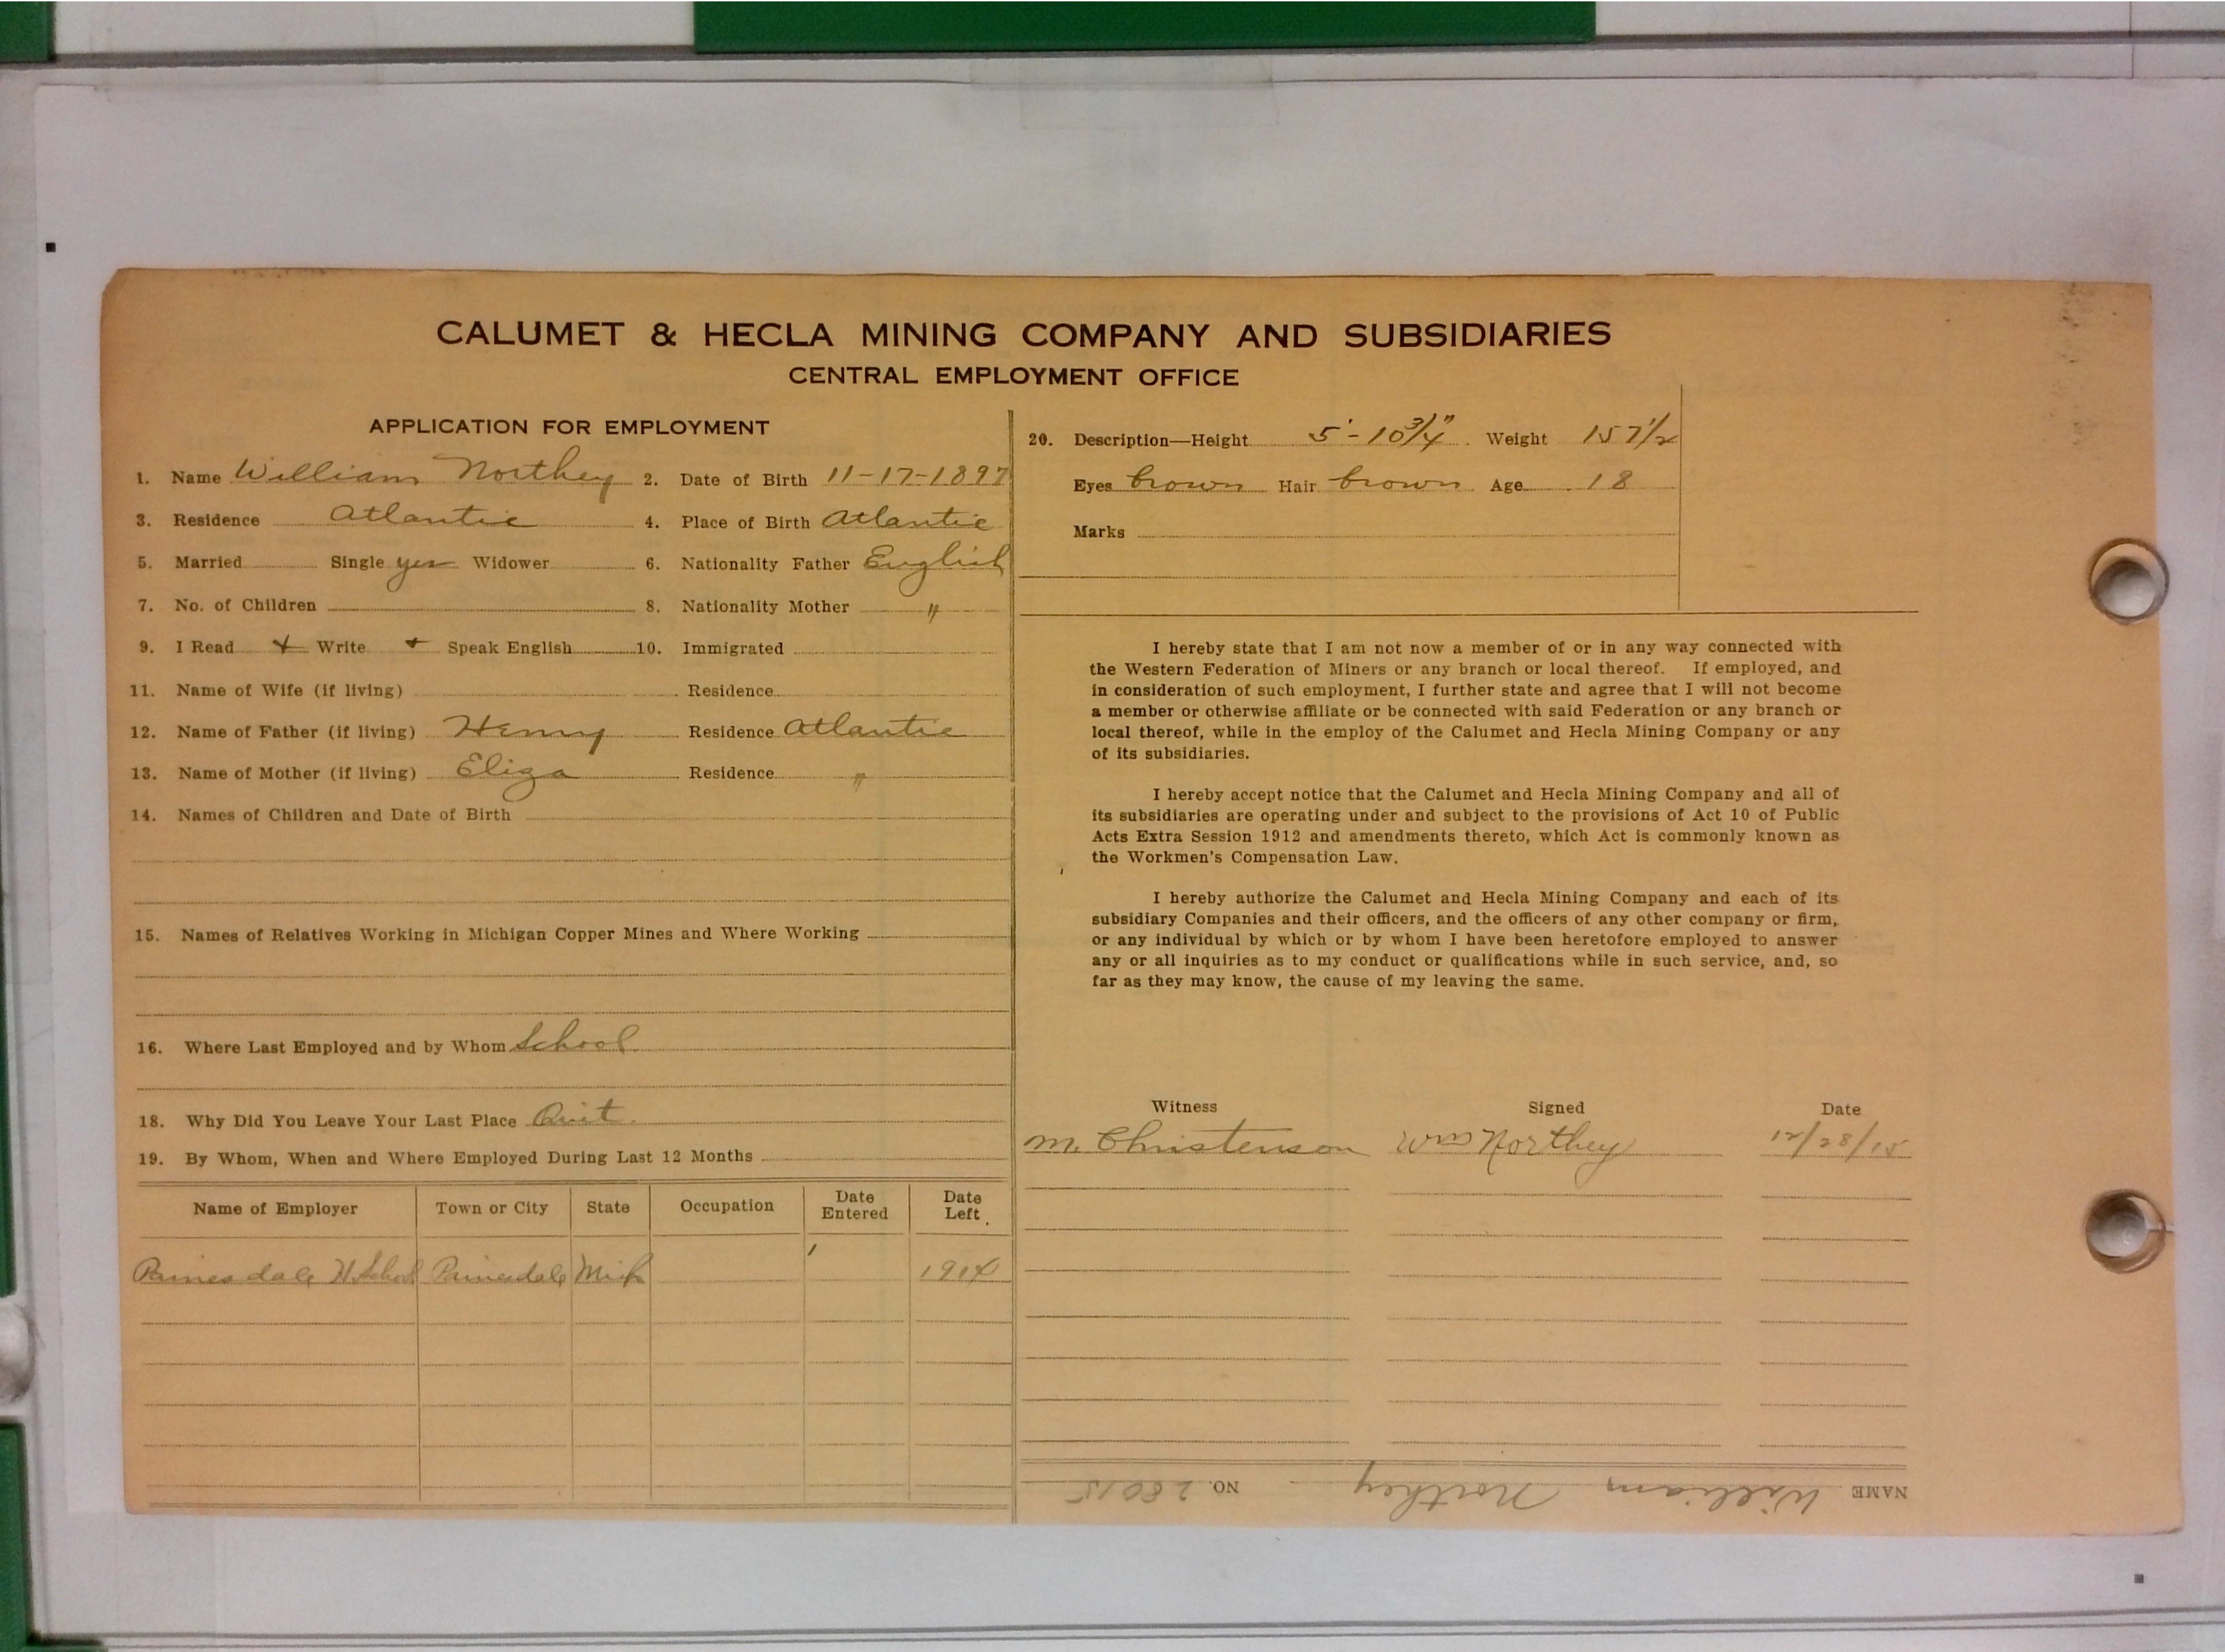 CALUMET & HECLA MINING COMPANY AND SUBSIDIARIES
CENTRAL EMPLOYMENT OFFICE
APPLICATION FOR EMPLOYMENT
1. Name William Northey 2. Date of Birth 11-17-1897
3. Residence Atlantic 4. Place of Birth Atlantic
5. Married Single yes Widower 6. Nationality Father English
7. No. of Children 8. Nationality Mother "
9. I Read + Write + Speak English 10. Immigrated
11. Name of Wife (if living) Residence
12. Name of Father (if living) Henry Residence Atlantic
13. Name of Mother (if living) Eliza Residence "
14. Names of Children and Date of Birth
15. Names of Relatives Working in Michigan Copper Mines and Where Working
16. Where Last Employed and by Whom School
18. Why Did You Leave Your Last Place Quit.
19. By Whom, When and Where Employed During Last 12 Months
Name of Employer Town or City State Occupation Date Entered Date Left
Painesdale H. School Painesdale Mich 1914
20. Description—Height 5'-10 3/4" Weight 157 1/2
Eyes brown Hair brown Age 18
Marks
I hereby state that I am not now a member of or in any way connected with
the Western Federation of Miners or any branch or local thereof. If employed, and
in consideration of such employment, I further state and agree that I will not become
a member or otherwise affiliate or be connected with said Federation or any branch or
local thereof, while in the employ of the Calumet and Hecla Mining Company or any
of its subsidiaries.
I hereby accept notice that the Calumet and Hecla Mining Company and all of
its subsidiaries are operating under and subject to the provisions of Act 10 of Public
Acts Extra Session 1912 and amendments thereto, which Act is commonly known as
the Workmen's Compensation Law.
I hereby authorize the Calumet and Hecla Mining Company and each of its
subsidiary Companies and their officers, and the officers of any other company or firm,
or any individual by which or by whom I have been heretofore employed to answer
any or all inquiries as to my conduct or qualifications while in such service, and, so
far as they may know, the cause of my leaving the same.
Witness Signed Date
M. Christenson Wm Northey 12/28/15
NAME William Northey NO. 28015